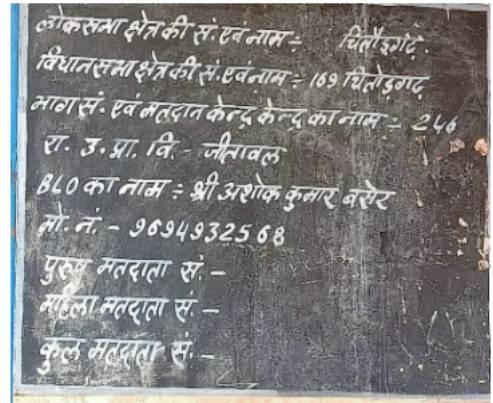 लोकसभा क्षेत्र की सं. एवं नाम ÷ चितौड़गढ़
विधानसभा क्षेत्र की सं. एवं नाम ÷ 169 चितोड़गढ़
भाग सं. एवं मतदान केन्द्र केन्द्र का नाम ÷ 246
रा. उ. प्रा. वि. - जीतावल
BLO का नाम ÷ श्री अशोक कुमार बसेर
मो. नं. - 9694932568
पुरुष मतदाता सं. -
महिला मतदाता सं -
कुल मतदाता सं. -